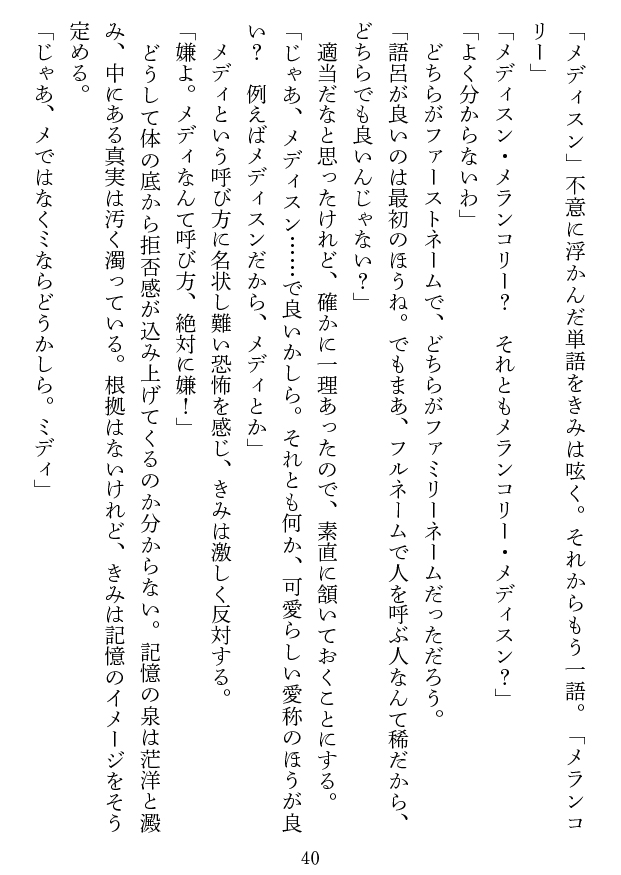 「メディスン」不意に浮かんだ単語をきみは呟く。それからもう一語。「メランコ
リー」
「メディスン・メランコリー？　それともメランコリー・メディスン？」
「よく分からないわ」
　どちらがファーストネームで、どちらがファミリーネームだっただろう。
「語呂が良いのは最初のほうね。でもまあ、フルネームで人を呼ぶ人なんて稀だから、
どちらでも良いんじゃない？」
　適当だなと思ったけれど、確かに一理あったので、素直に頷いておくことにする。
「じゃあ、メディスン……で良いかしら。それとも何か、可愛らしい愛称のほうが良
い？　例えばメディスンだから、メディとか」
　メディという呼び方に名状し難い恐怖を感じ、きみは激しく反対する。
「嫌よ。メディなんて呼び方、絶対に嫌！」
　どうして体の底から拒否感が込み上げてくるのか分からない。記憶の泉は茫洋と澱
み、中にある真実は汚く濁っている。根拠はないけれど、きみは記憶のイメージをそう
定める。
「じゃあ、メではなくミならどうかしら。ミディ」
40